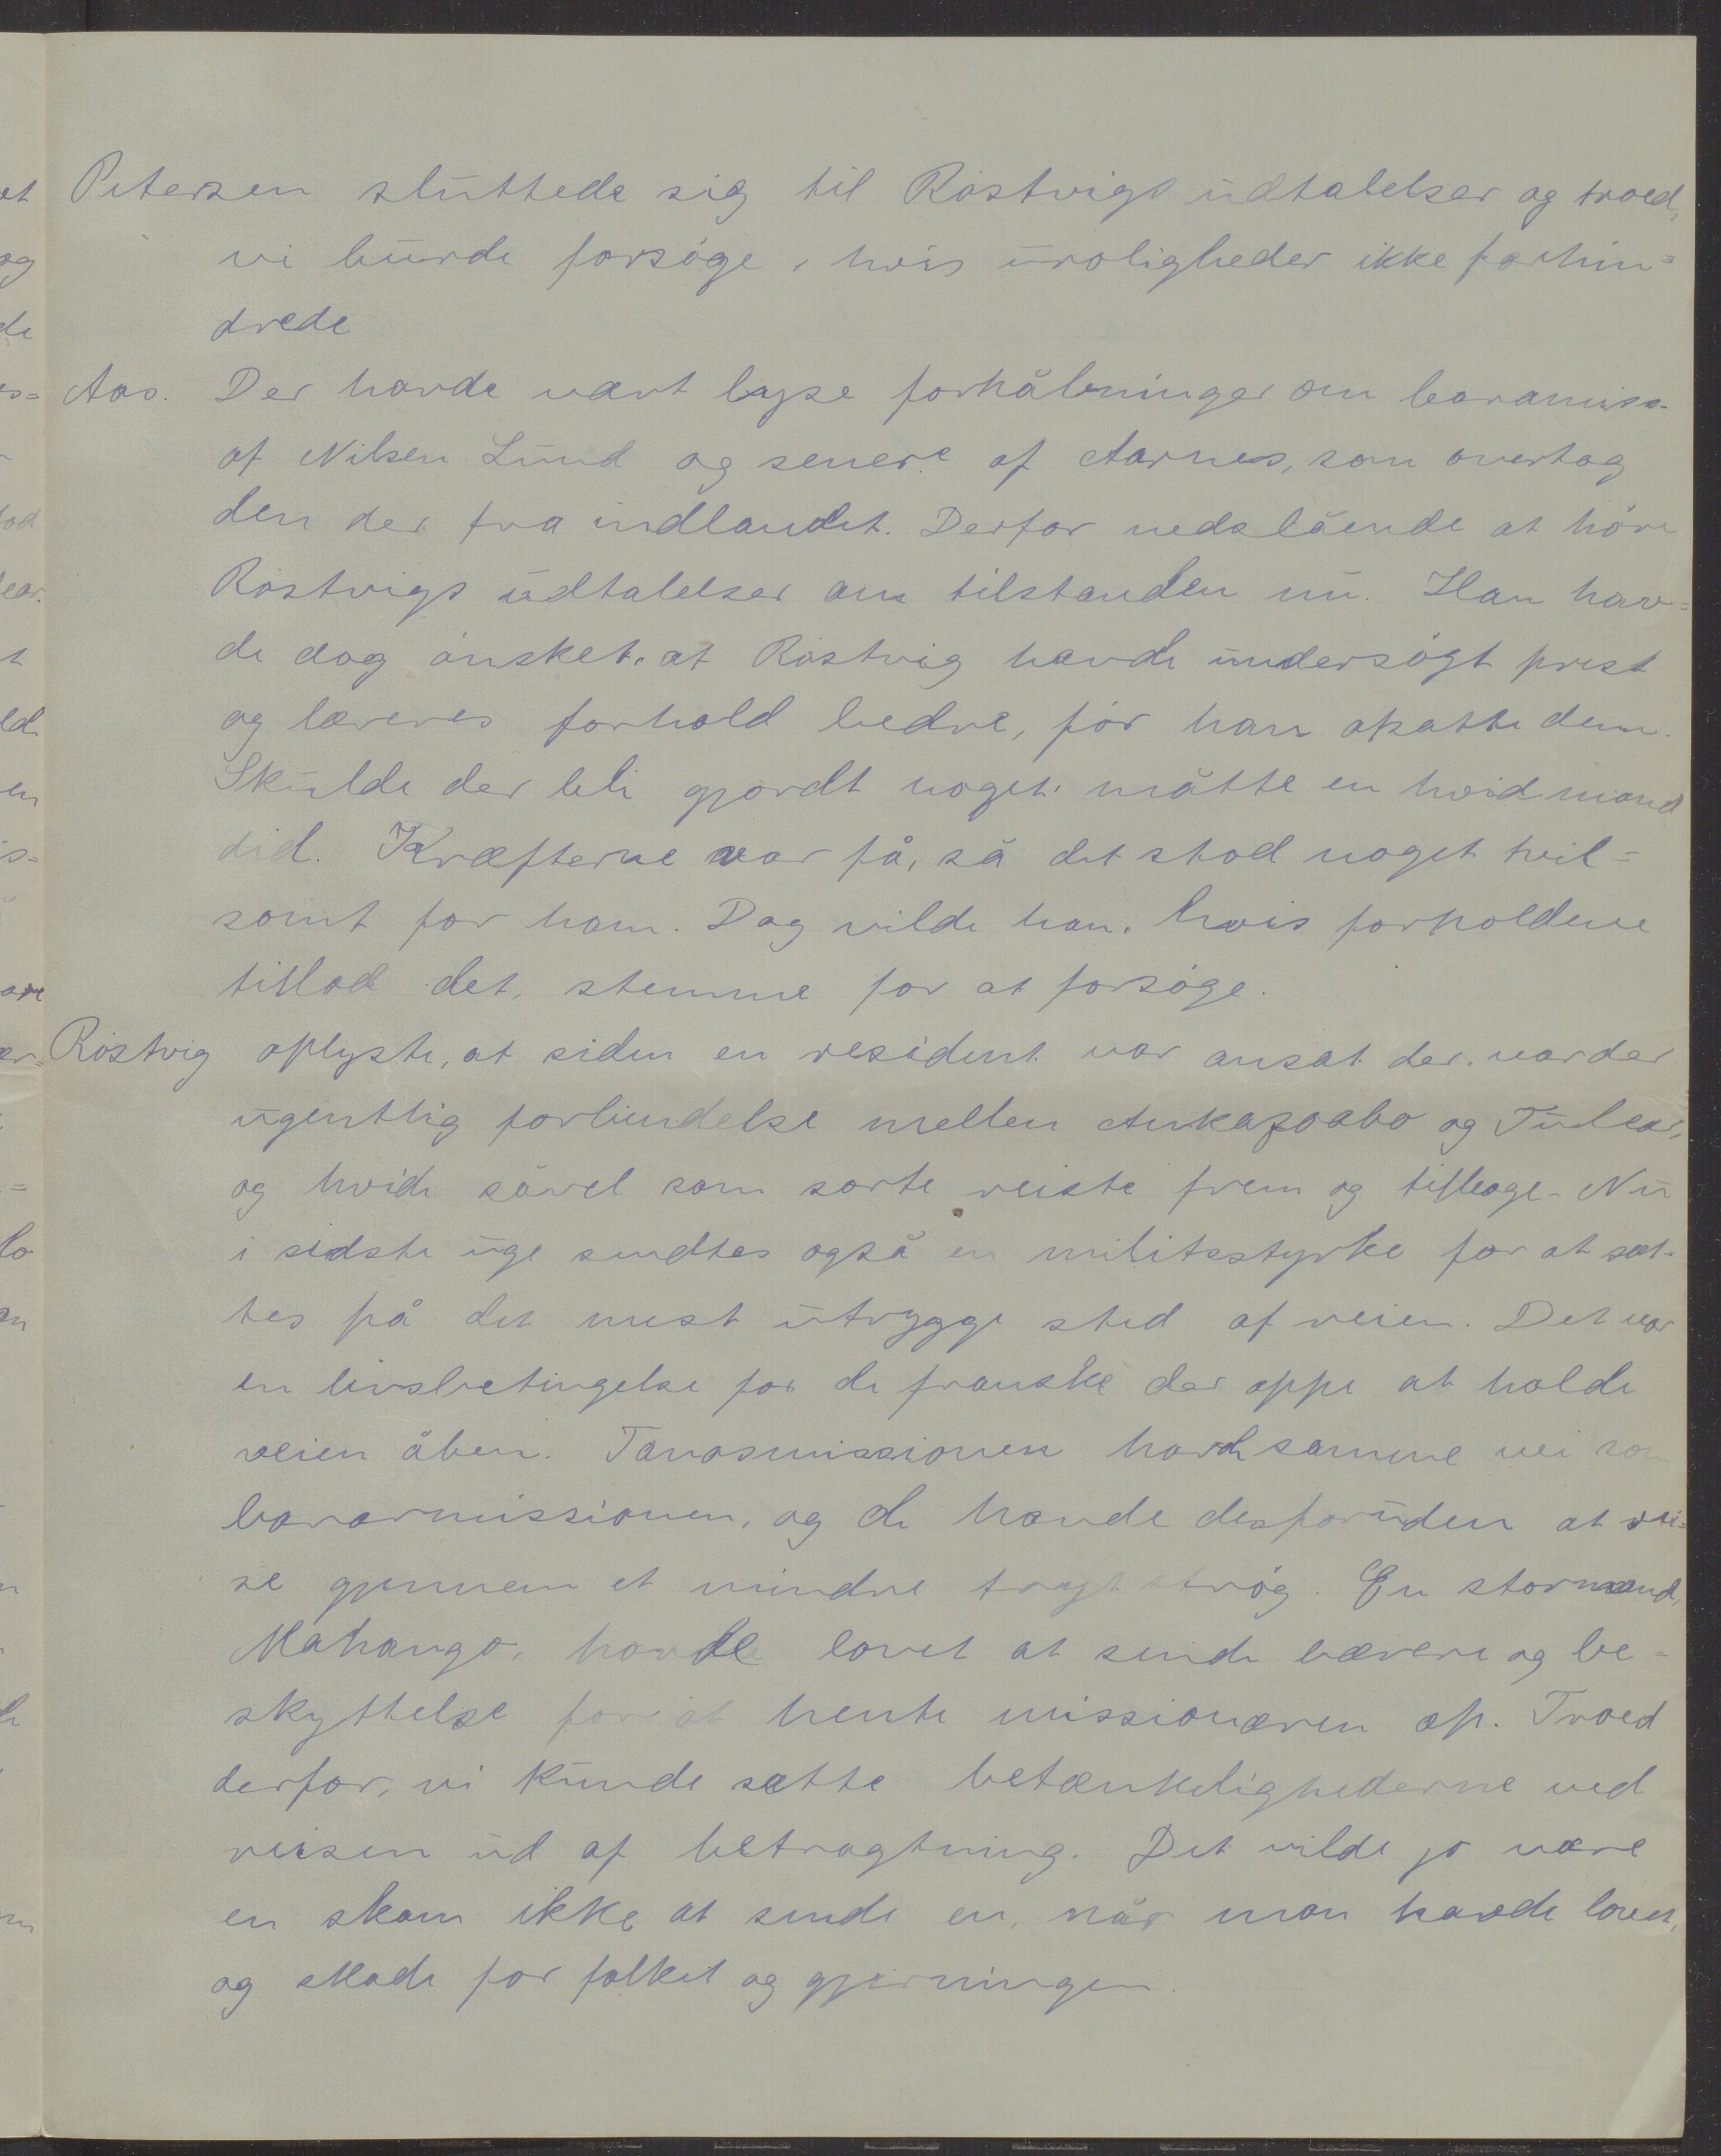 Petersen sluttede sig til Röstvigs udtalelser og troed,
vi burde forsöge, hvis uroligheder ikke forhin=
drede
Aas. Der havde vært lyse forhåbninger om baramiss.
af Nilsen Lund og senere af Aarnes, som overtog
den der fra indlandet. Derfor nedslående at höre
Röstvigs udtalelser om tilstanden nu. Han hav=
de dog önsket, at Röstvig havde undersögt prest
og læreres forhold bedre, för han opsatte dem.
Skulde der bli gjordt noget, måtte en hvid mand
did. Kræfterne var få, så det stod noget tvil=
somt for ham. Dog vilde han, hvis forholdene
tillod det, stemme for at forsöge.
Röstvig oplyste, at siden en resident var ansat der, var der
ugentlig forbindelse mellen Ankazoabo og Tulear,
og hvide såvel som sorte reiste frem og tilbage. Nu
i sidste uge sendtes også en militsstyrke for at sæt-
tes på det mest utrygge sted af veien. Det var
en livsbetingelse for de franske der oppe at holde
veien åben. Tanosmissionen havde samme vei som
bararmissionen, og de havde desforuden at rei=
se gjennem et mindre trygt strög. En stormand,
Mahango, havde lovet at sende bærere og be=
skyttelse for at hente missionæren op. Troed
derfor, vi kunde sætte betænkelighederne ved
reisen ud af betragtning. Det vilde jo være
en skam ikke at sende en, når man havde lovet,
og skade for folket og gjerningen.